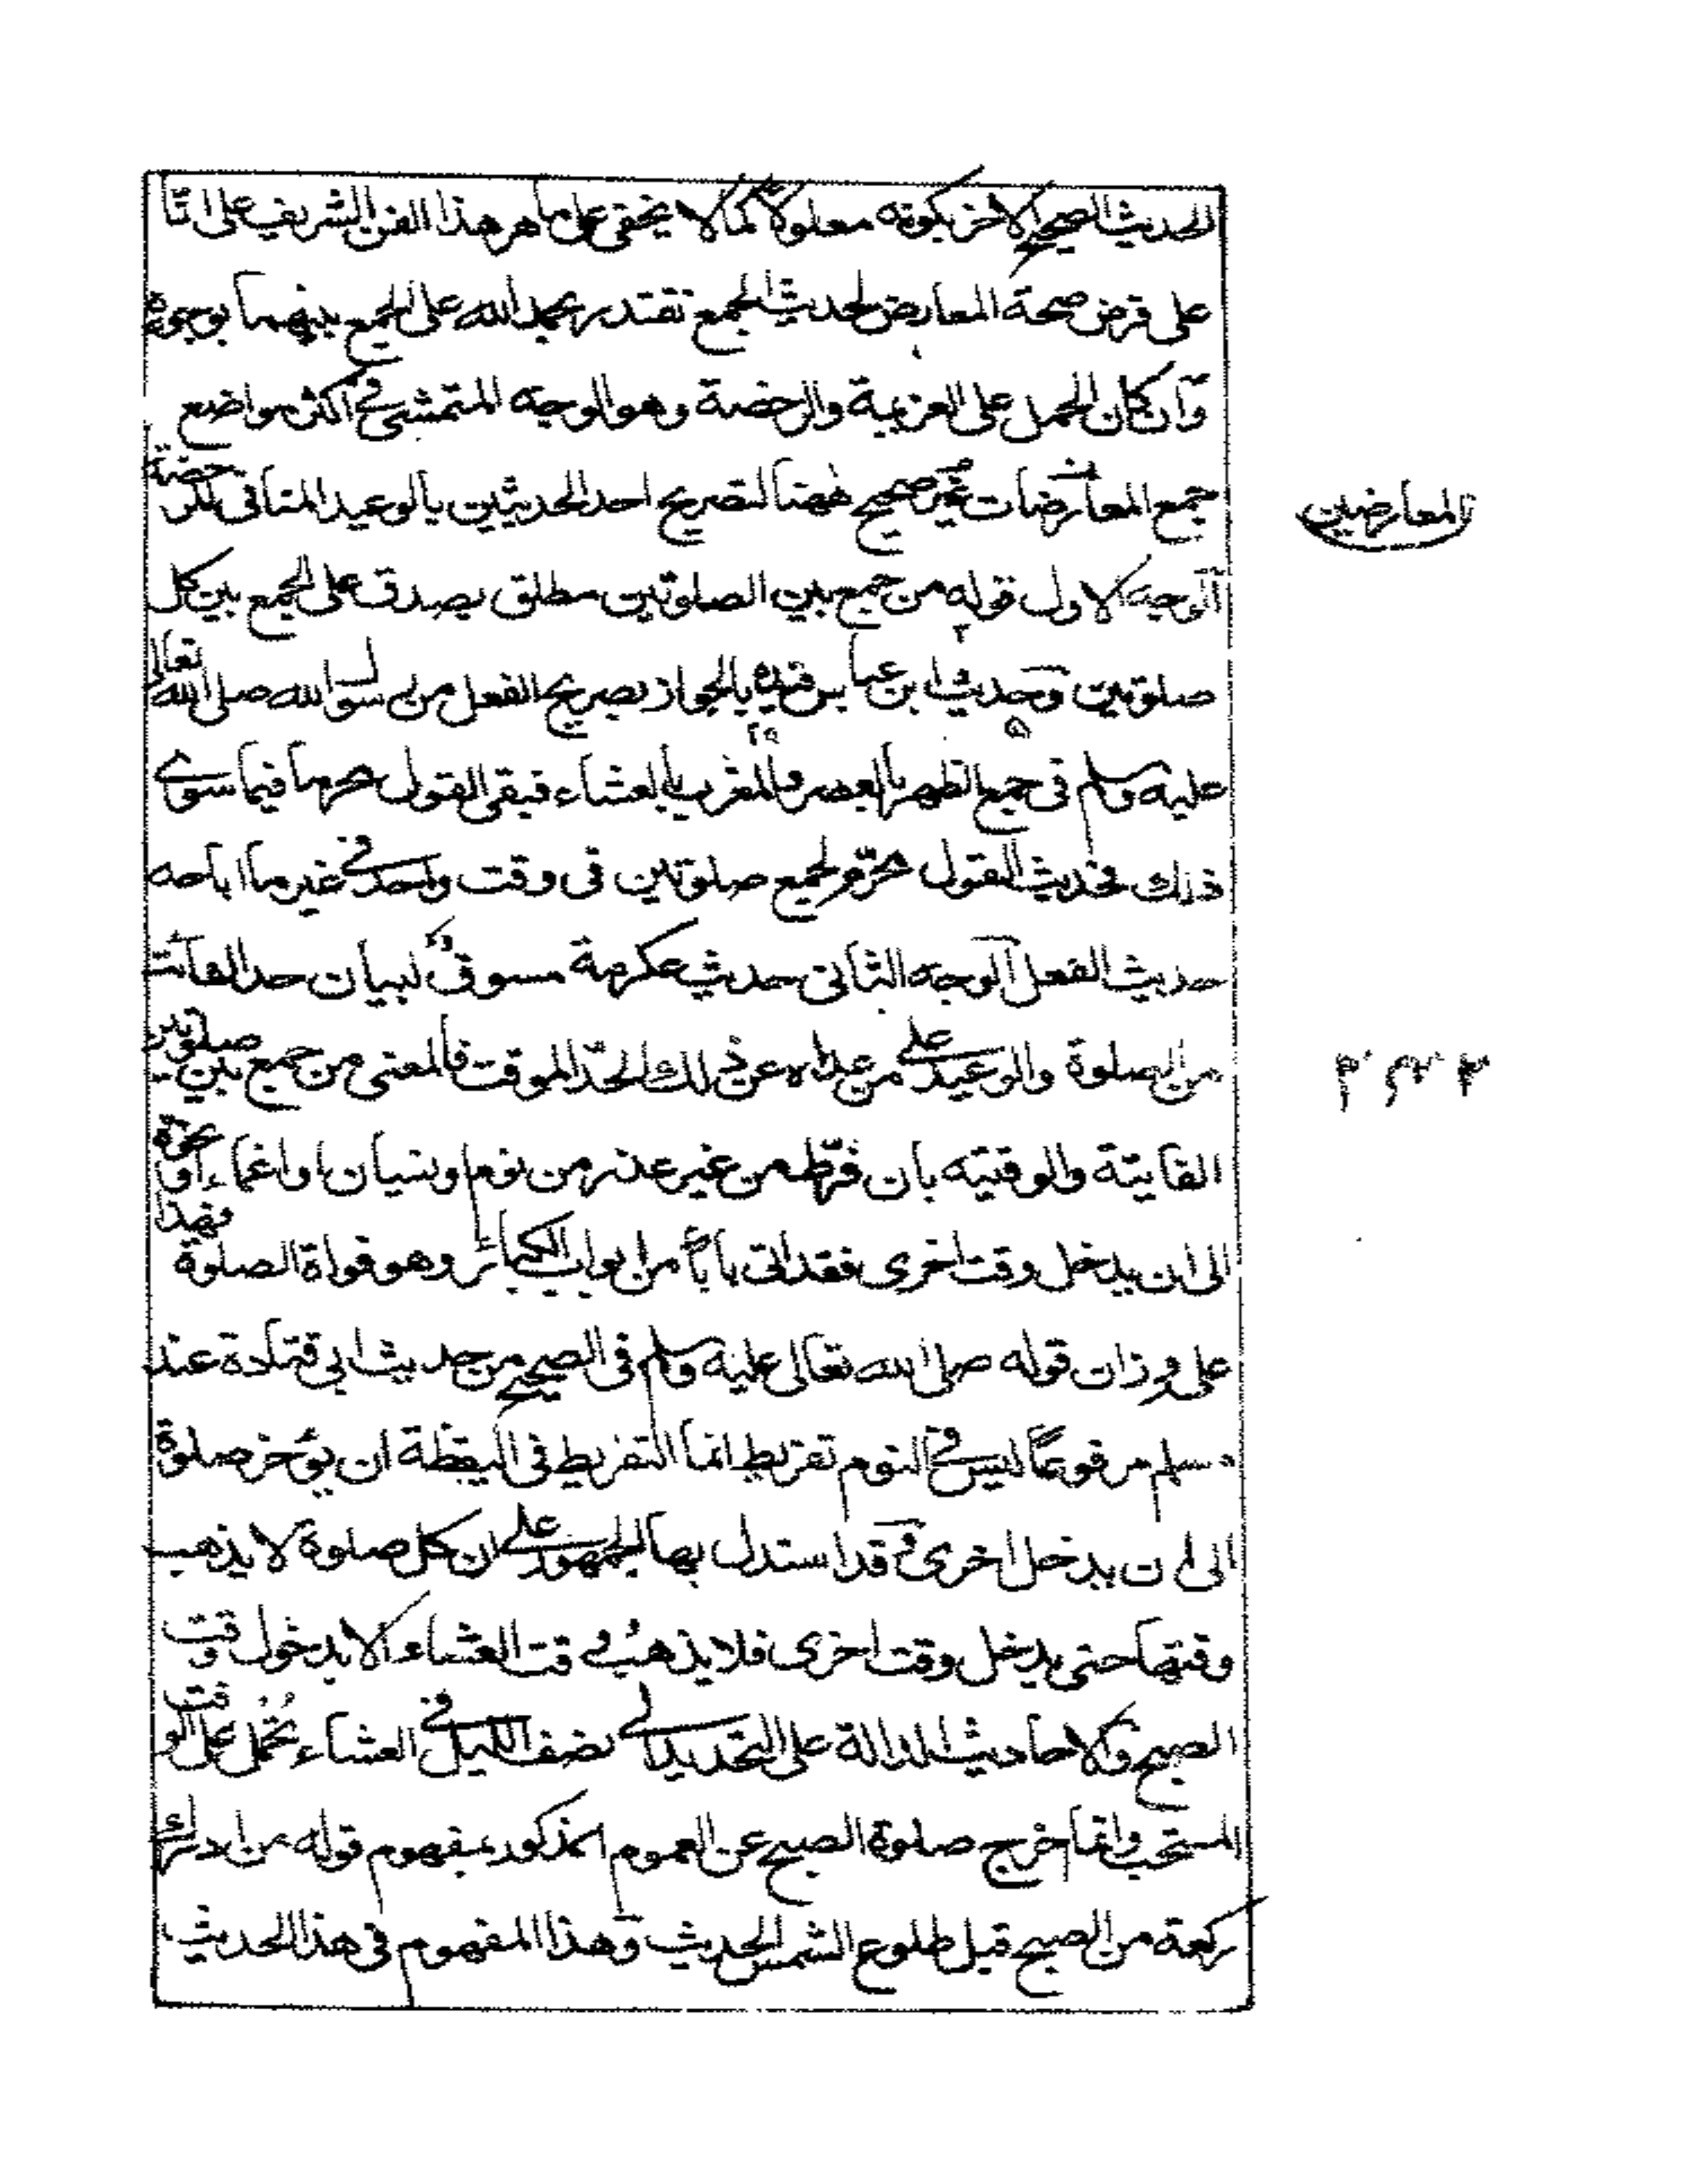 الحديث الصحيح الاخر بكونه معلولا كما لا يخفى على ماهر هذا الفن الشريف على انا
على فرض صحة المعارض لحديث الجمع نقتدر بحمد الله على الجمع بينهما بوجوه
وان كان الحمل على العزيمة والرخصة وهو الوجه المتمشى فى اكثر مواضع
جمع المعارضات غير صحيح ههنا لتصريح احد الحديثين بالوعيد المنافى للرخصة
المعارضين
الوجه الاول قوله من جمع بين الصلوتين مطلق يصدق على الجمع بين كل
صلوتين وحديث ابن عباس قيده بالجواز بصريح الفعل من رسول الله صلى الله تعالى
عليه وسلم فى جمع الظهر بالعصر والمغرب بالعشاء فيبقى القول حرما فيما سوى
ذلك فحديث القول محرم لجمع صلوتين فى وقت واحد فى غير ما اباحه
حديث الفعل الوجه الثانى حديث عكرمة مسوق لبيان حد الفائت
من الصلوة والوعيد على من عداه عن ذلك الحد الموقت فالمعنى من جمع بين صلوتين
٢ ٣ ٣
الفايتة والوقتيه بان فرط من غير عذر من نوم او نسيان او اغماء او نحوه
الى ان يدخل وقت اخرى فقد اتى بابا من ابواب الكبائر وهو فواة الصلوة فهذا
على وزان قوله صلى الله تعالى عليه وسلم فى الصحيح من حديث ابى قتادة عند
مسلم مرفوعا ليس فى النوم تفريط انما التفريط فى اليقظة ان يؤخر صلوة
الى ان يدخل اخرى وقد استدل بها الجمهور على ان كل صلوة لا يذهب
وقتها حتى يدخل وقت اخرى فلا يذهب وقت العشاء الا بدخول وقت
الصبح والاحاديث الدالة على التحديد الى نصف الليل فى العشاء تحمل على الوقت
المستحب وانما خرج صلوة الصبح عن العموم المذكور بمفهوم قوله من ادرك
ركعة من الصبح قبل طلوع الشمس الحديث وهذا المفهوم فى هذا الحديث